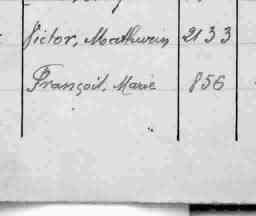 Victor, Mathurin 2133
François, Marie 856